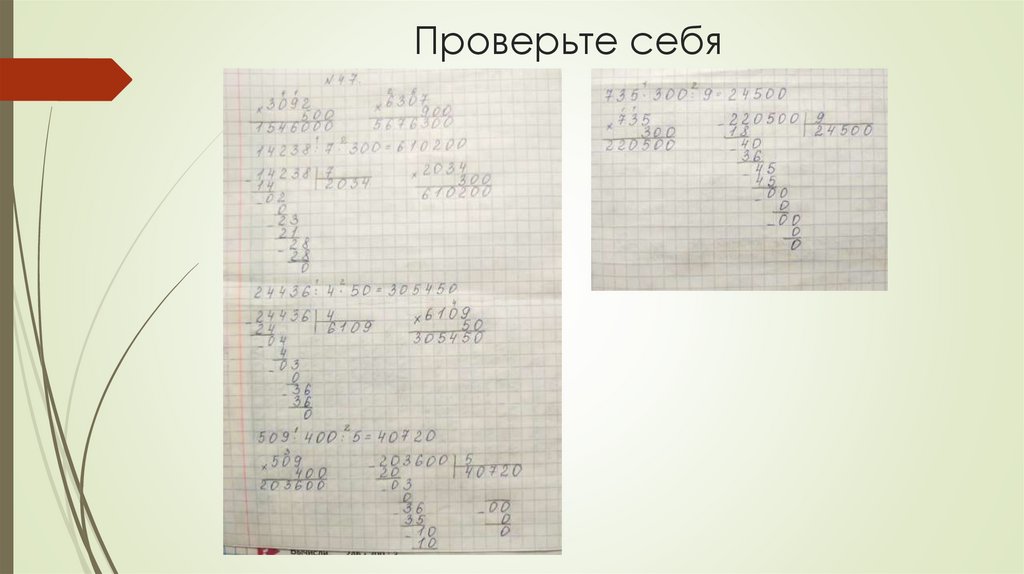 Проверьте себя
N 47.
1 1
× 3092
500
1546000
2 6
× 6307
900
5676300
1 2
14238 : 7 · 300 = 610200
- 14238 | 7
14 2034
- 02
0
- 23
21
- 28
28
0
× 2034
300
610200
1 2
24436 : 4 · 50 = 305450
- 24436 | 4
24 6109
- 04
4
- 03
0
- 36
36
0
4
× 6109
50
305450
1 2
509 · 400 : 5 = 40720
3
× 509
400
203600
- 203600 | 5
20 40720
- 03
0
- 36
35
- 10
10
- 00
0
0
Вычисли
1 2
735 · 300 : 9 = 24500
1 1
× 735
300
220500
- 220500 | 9
18 24500
- 40
36
- 45
45
- 00
0
- 00
0
0